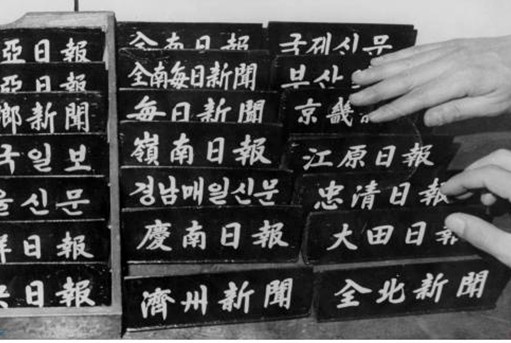 亞日報
亞日報
鄕新聞
국일보
신문
日報
日報
全南日報
全南每日新聞
每日新聞
嶺南日報
경남매일신문
慶南日報
濟州新聞
국제신문
부산
京畿
江原日報
忠清日報
大田日報
全北新聞